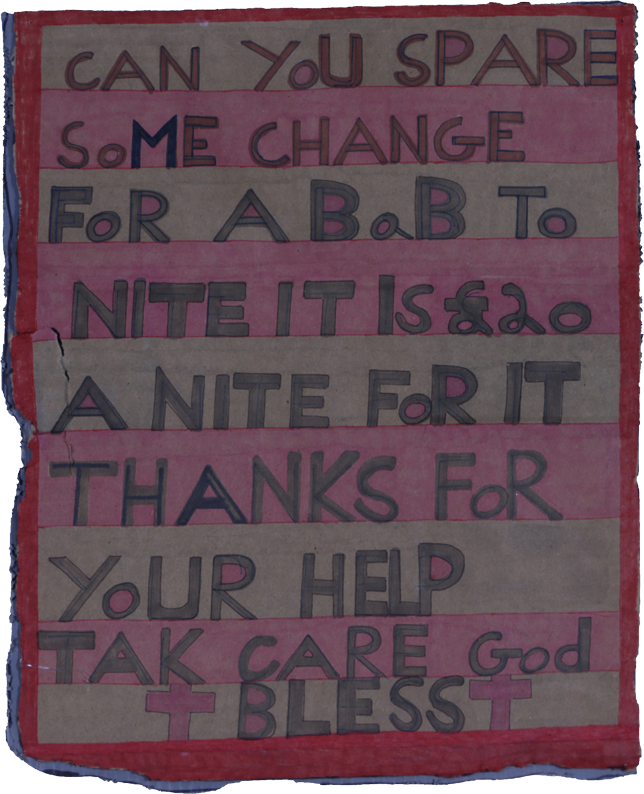 CAN YoU SPARE
SoME CHANGE
FoR A BaB To
NITE IT IS £20
A NITE FoR IT
THANKS FoR
YoUR HELP
TAK CARE God
BLESS